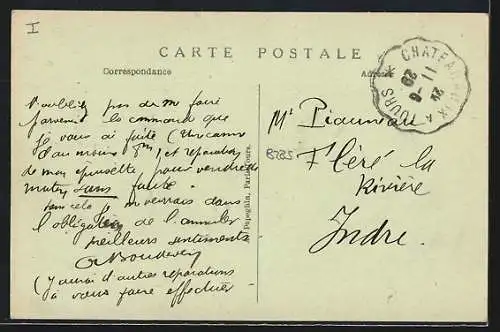 I
CARTE POSTALE
Correspondance
Adresse
CHATEAUROUX A TOURS
11-6
29
N'oubliez pas de me faire
parvenir la commande que
je vous ai faite
d'au moins et réparation
de mon pour vendredi
matin sans faute.
Sans cela je me verrais dans
l'obligation de l'annuler
meilleurs sentiments
(j'aurai d'autres réparations
à vous faire effectuer
Mr Piauneau
8285
Fléré la
Rivière
Indre.
Papeghin, Paris-Tours.